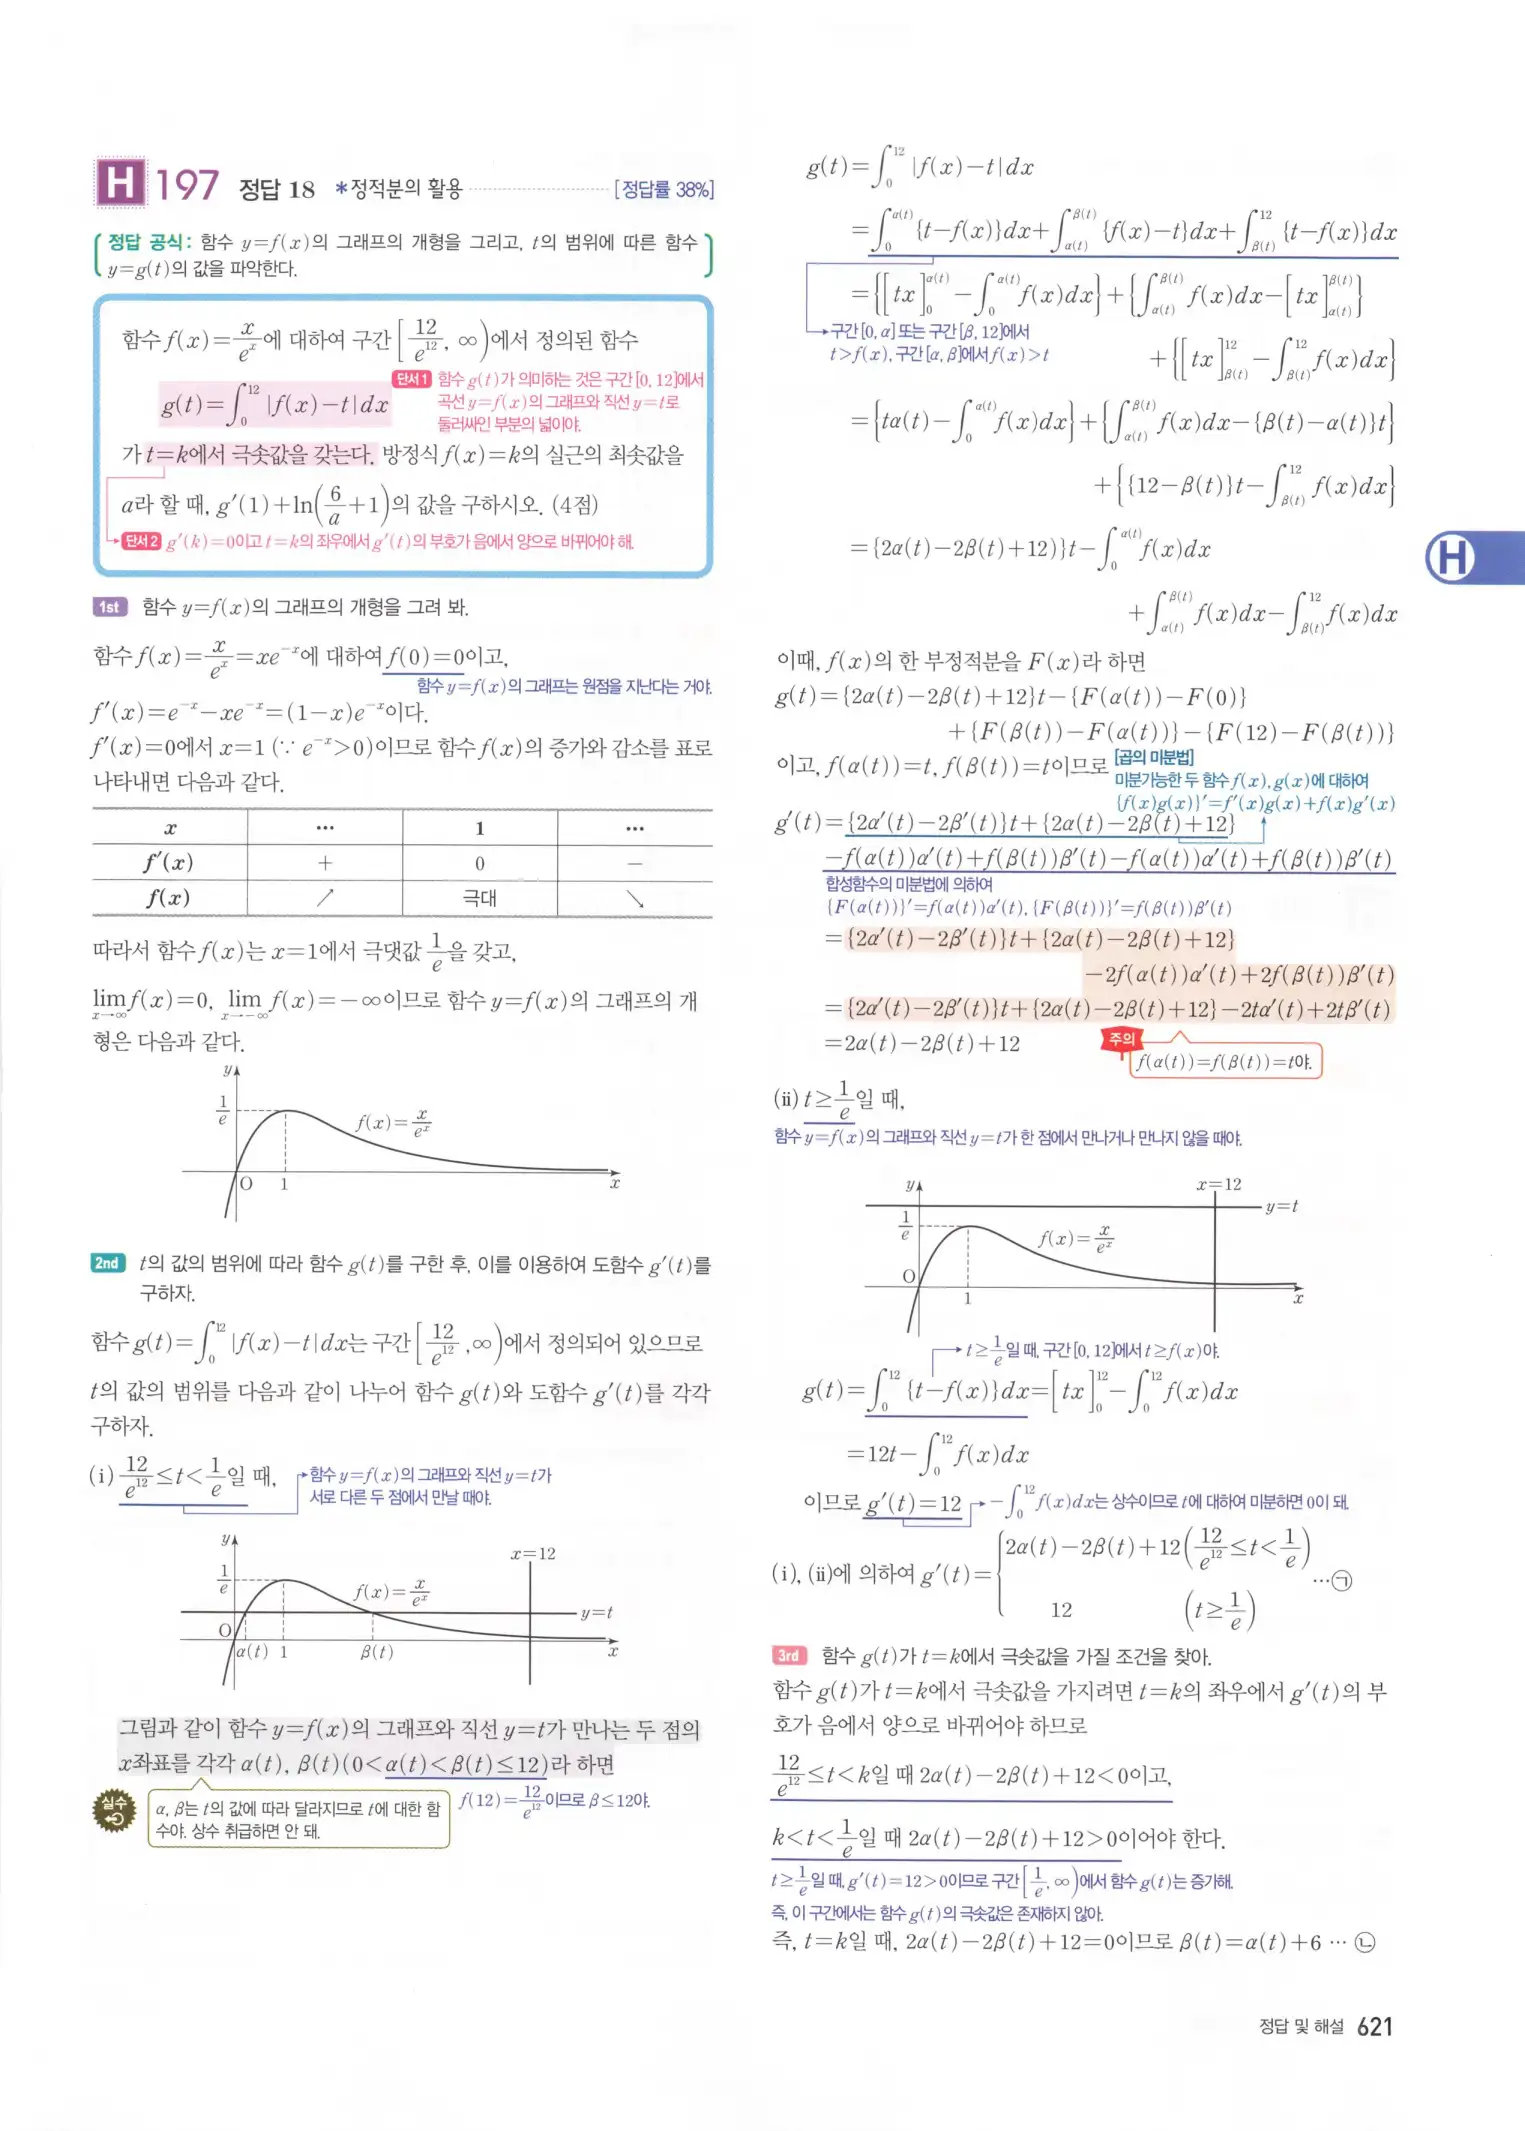 H 197 정답 18 *정적분의 활용 [정답률 38%]
정답 공식: 함수 y=f(x)의 그래프의 개형을 그리고, t의 범위에 따른 함수
y=g(t)의 값을 파악한다.
함수 f(x)=x/e^x에 대하여 구간 [12/e^12, ∞)에서 정의된 함수
단서1 함수 g(t)가 의미하는 것은 구간 [0, 12]에서
g(t)=∫_0^12 |f(x)-t|dx 곡선 y=f(x)의 그래프와 직선 y=t로
둘러싸인 부분의 넓이야.
가 t=k에서 극솟값을 갖는다. 방정식 f(x)=k의 실근의 최솟값을
a라 할 때, g'(1)+ln(6/a+1)의 값을 구하시오. (4점)
단서2 g'(k)=0이고 t=k의 좌우에서 g'(t)의 부호가 음에서 양으로 바뀌어야 해.
1st 함수 y=f(x)의 그래프의 개형을 그려 봐.
함수 f(x)=x/e^x=xe^{-x}에 대하여 f(0)=0이고,
함수 y=f(x)의 그래프는 원점을 지난다는 거야.
f'(x)=e^{-x}-xe^{-x}=(1-x)e^{-x}이다.
f'(x)=0에서 x=1 (∵ e^{-x}>0)이므로 함수 f(x)의 증가와 감소를 표로
나타내면 다음과 같다.
x ⋯ 1 ⋯
f'(x) + 0 −
f(x) ↗ 극대 ↘
따라서 함수 f(x)는 x=1에서 극댓값 1/e을 갖고,
lim_{x→∞} f(x)=0, lim_{x→-∞} f(x)=-∞이므로 함수 y=f(x)의 그래프의 개
형은 다음과 같다.
y
1/e f(x)=x/e^x
O 1 x
2nd t의 값의 범위에 따라 함수 g(t)를 구한 후, 이를 이용하여 도함수 g'(t)를
구하자.
함수 g(t)=∫_0^12 |f(x)-t|dx는 구간 [12/e^12, ∞)에서 정의되어 있으므로
t의 값의 범위를 다음과 같이 나누어 함수 g(t)와 도함수 g'(t)를 각각
구하자.
(i) 12/e^12≤t<1/e일 때, 함수 y=f(x)의 그래프와 직선 y=t가
서로 다른 두 점에서 만날 때야.
y x=12
1/e f(x)=x/e^x
y=t
O α(t) 1 β(t) x
그림과 같이 함수 y=f(x)의 그래프와 직선 y=t가 만나는 두 점의
x좌표를 각각 α(t), β(t)(0<α(t)<β(t)≤12)라 하면
실수 α, β는 t의 값에 따라 달라지므로 t에 대한 함 f(12)=12/e^12이므로 β≤12야.
수야. 상수 취급하면 안 돼.
g(t)=∫_0^12 |f(x)-t|dx
=∫_0^{α(t)} {t-f(x)}dx+∫_{α(t)}^{β(t)} {f(x)-t}dx+∫_{β(t)}^12 {t-f(x)}dx
={[tx]_0^{α(t)}-∫_0^{α(t)} f(x)dx}+{∫_{α(t)}^{β(t)} f(x)dx-[tx]_{α(t)}^{β(t)}}
구간 [0, α] 또는 구간 [β, 12]에서
t>f(x), 구간 [α, β]에서 f(x)>t
+{[tx]_{β(t)}^12-∫_{β(t)}^12 f(x)dx}
={tα(t)-∫_0^{α(t)} f(x)dx}+{∫_{α(t)}^{β(t)} f(x)dx-{β(t)-α(t)}t}
+{{12-β(t)}t-∫_{β(t)}^12 f(x)dx}
={2α(t)-2β(t)+12)}t-∫_0^{α(t)} f(x)dx
+∫_{α(t)}^{β(t)} f(x)dx-∫_{β(t)}^12 f(x)dx
이때, f(x)의 한 부정적분을 F(x)라 하면
g(t)={2α(t)-2β(t)+12}t-{F(α(t))-F(0)}
+{F(β(t))-F(α(t))}-{F(12)-F(β(t))}
이고, f(α(t))=t, f(β(t))=t이므로 [곱의 미분법]
미분가능한 두 함수 f(x), g(x)에 대하여
{f(x)g(x)}'=f'(x)g(x)+f(x)g'(x)
g'(t)={2α'(t)-2β'(t)}t+{2α(t)-2β(t)+12}
-f(α(t))α'(t)+f(β(t))β'(t)-f(α(t))α'(t)+f(β(t))β'(t)
합성함수의 미분법에 의하여
{F(α(t))}'=f(α(t))α'(t), {F(β(t))}'=f(β(t))β'(t)
={2α'(t)-2β'(t)}t+{2α(t)-2β(t)+12}
-2f(α(t))α'(t)+2f(β(t))β'(t)
={2α'(t)-2β'(t)}t+{2α(t)-2β(t)+12}-2tα'(t)+2tβ'(t)
=2α(t)-2β(t)+12 주의 f(α(t))=f(β(t))=t야.
(ii) t≥1/e일 때,
함수 y=f(x)의 그래프와 직선 y=t가 한 점에서 만나거나 만나지 않을 때야.
y x=12
y=t
1/e f(x)=x/e^x
O 1 x
t≥1/e일 때, 구간 [0, 12]에서 t≥f(x)야.
g(t)=∫_0^12 {t-f(x)}dx=[tx]_0^12-∫_0^12 f(x)dx
=12t-∫_0^12 f(x)dx
이므로 g'(t)=12 -∫_0^12 f(x)dx는 상수이므로 t에 대하여 미분하면 0이 돼.
(i), (ii)에 의하여 g'(t)={2α(t)-2β(t)+12 (12/e^12≤t<1/e) ⋯㉠
12 (t≥1/e)
3rd 함수 g(t)가 t=k에서 극솟값을 가질 조건을 찾아.
함수 g(t)가 t=k에서 극솟값을 가지려면 t=k의 좌우에서 g'(t)의 부
호가 음에서 양으로 바뀌어야 하므로
12/e^12≤t<k일 때 2α(t)-2β(t)+12<0이고,
k<t<1/e일 때 2α(t)-2β(t)+12>0이어야 한다.
t≥1/e일 때, g'(t)=12>0이므로 구간 [1/e, ∞)에서 함수 g(t)는 증가해.
즉, 이 구간에서는 함수 g(t)의 극솟값은 존재하지 않아.
즉, t=k일 때, 2α(t)-2β(t)+12=0이므로 β(t)=α(t)+6 ⋯ ㉡
H
정답 및 해설 621